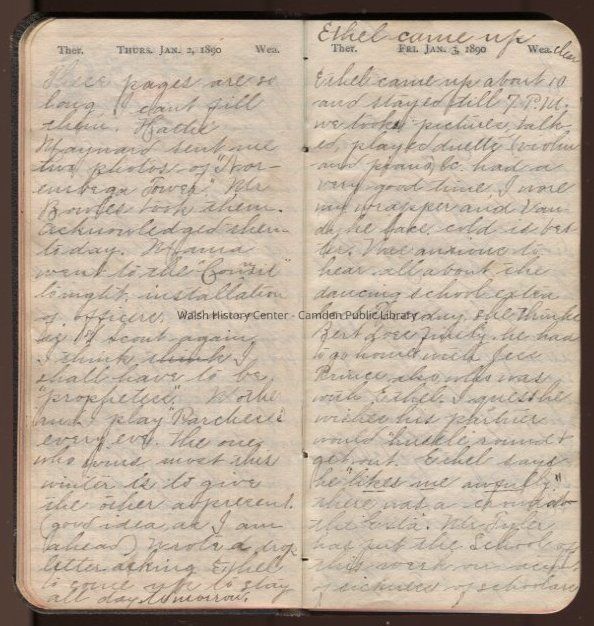 Ther. THURS. JAN. 2, 1890 Wea.
These pages are so
long I cant fill
them. Hattie
Maynard sent me
two photos of "Nor-
embega Tower." Mr
Bowles took them.
Acknowledged them
to day. Mama
went to the "Consil"
to night, installation
of officers.
Scout again
I think I
shall have to be
"prophetess."
and I play Parchesi
every eve. The one
who wins most this
winter is to give
the other a present.
(good idea as I am
ahead) Wrote a drop
letter asking Ethel
to come up to stay
all day tomorrow.
Ethel came up
Ther. FRI. JAN. 3, 1890 Wea. clear
Ethel came up about 10
and stayed till 7 P.M.
we took pictures, talk-
ed, played duetts (violin
and piano) &c. had a
very good time I wore
my wrapper and
face. cold is bet-
ter. Was anxious to
hear all about the
dancing school extra
day, she thinks
Bert he had
to go home with Jess
Prince also who was
with Ethel. I guess he
wishes his partner
would hustle round &
get out. Ethel says
he "likes me awfully."
there was a crowd
the extra. Mr Tyler
has put the School off
this week on acc't
of sickness of scholars
Walsh History Center - Camden Public Library